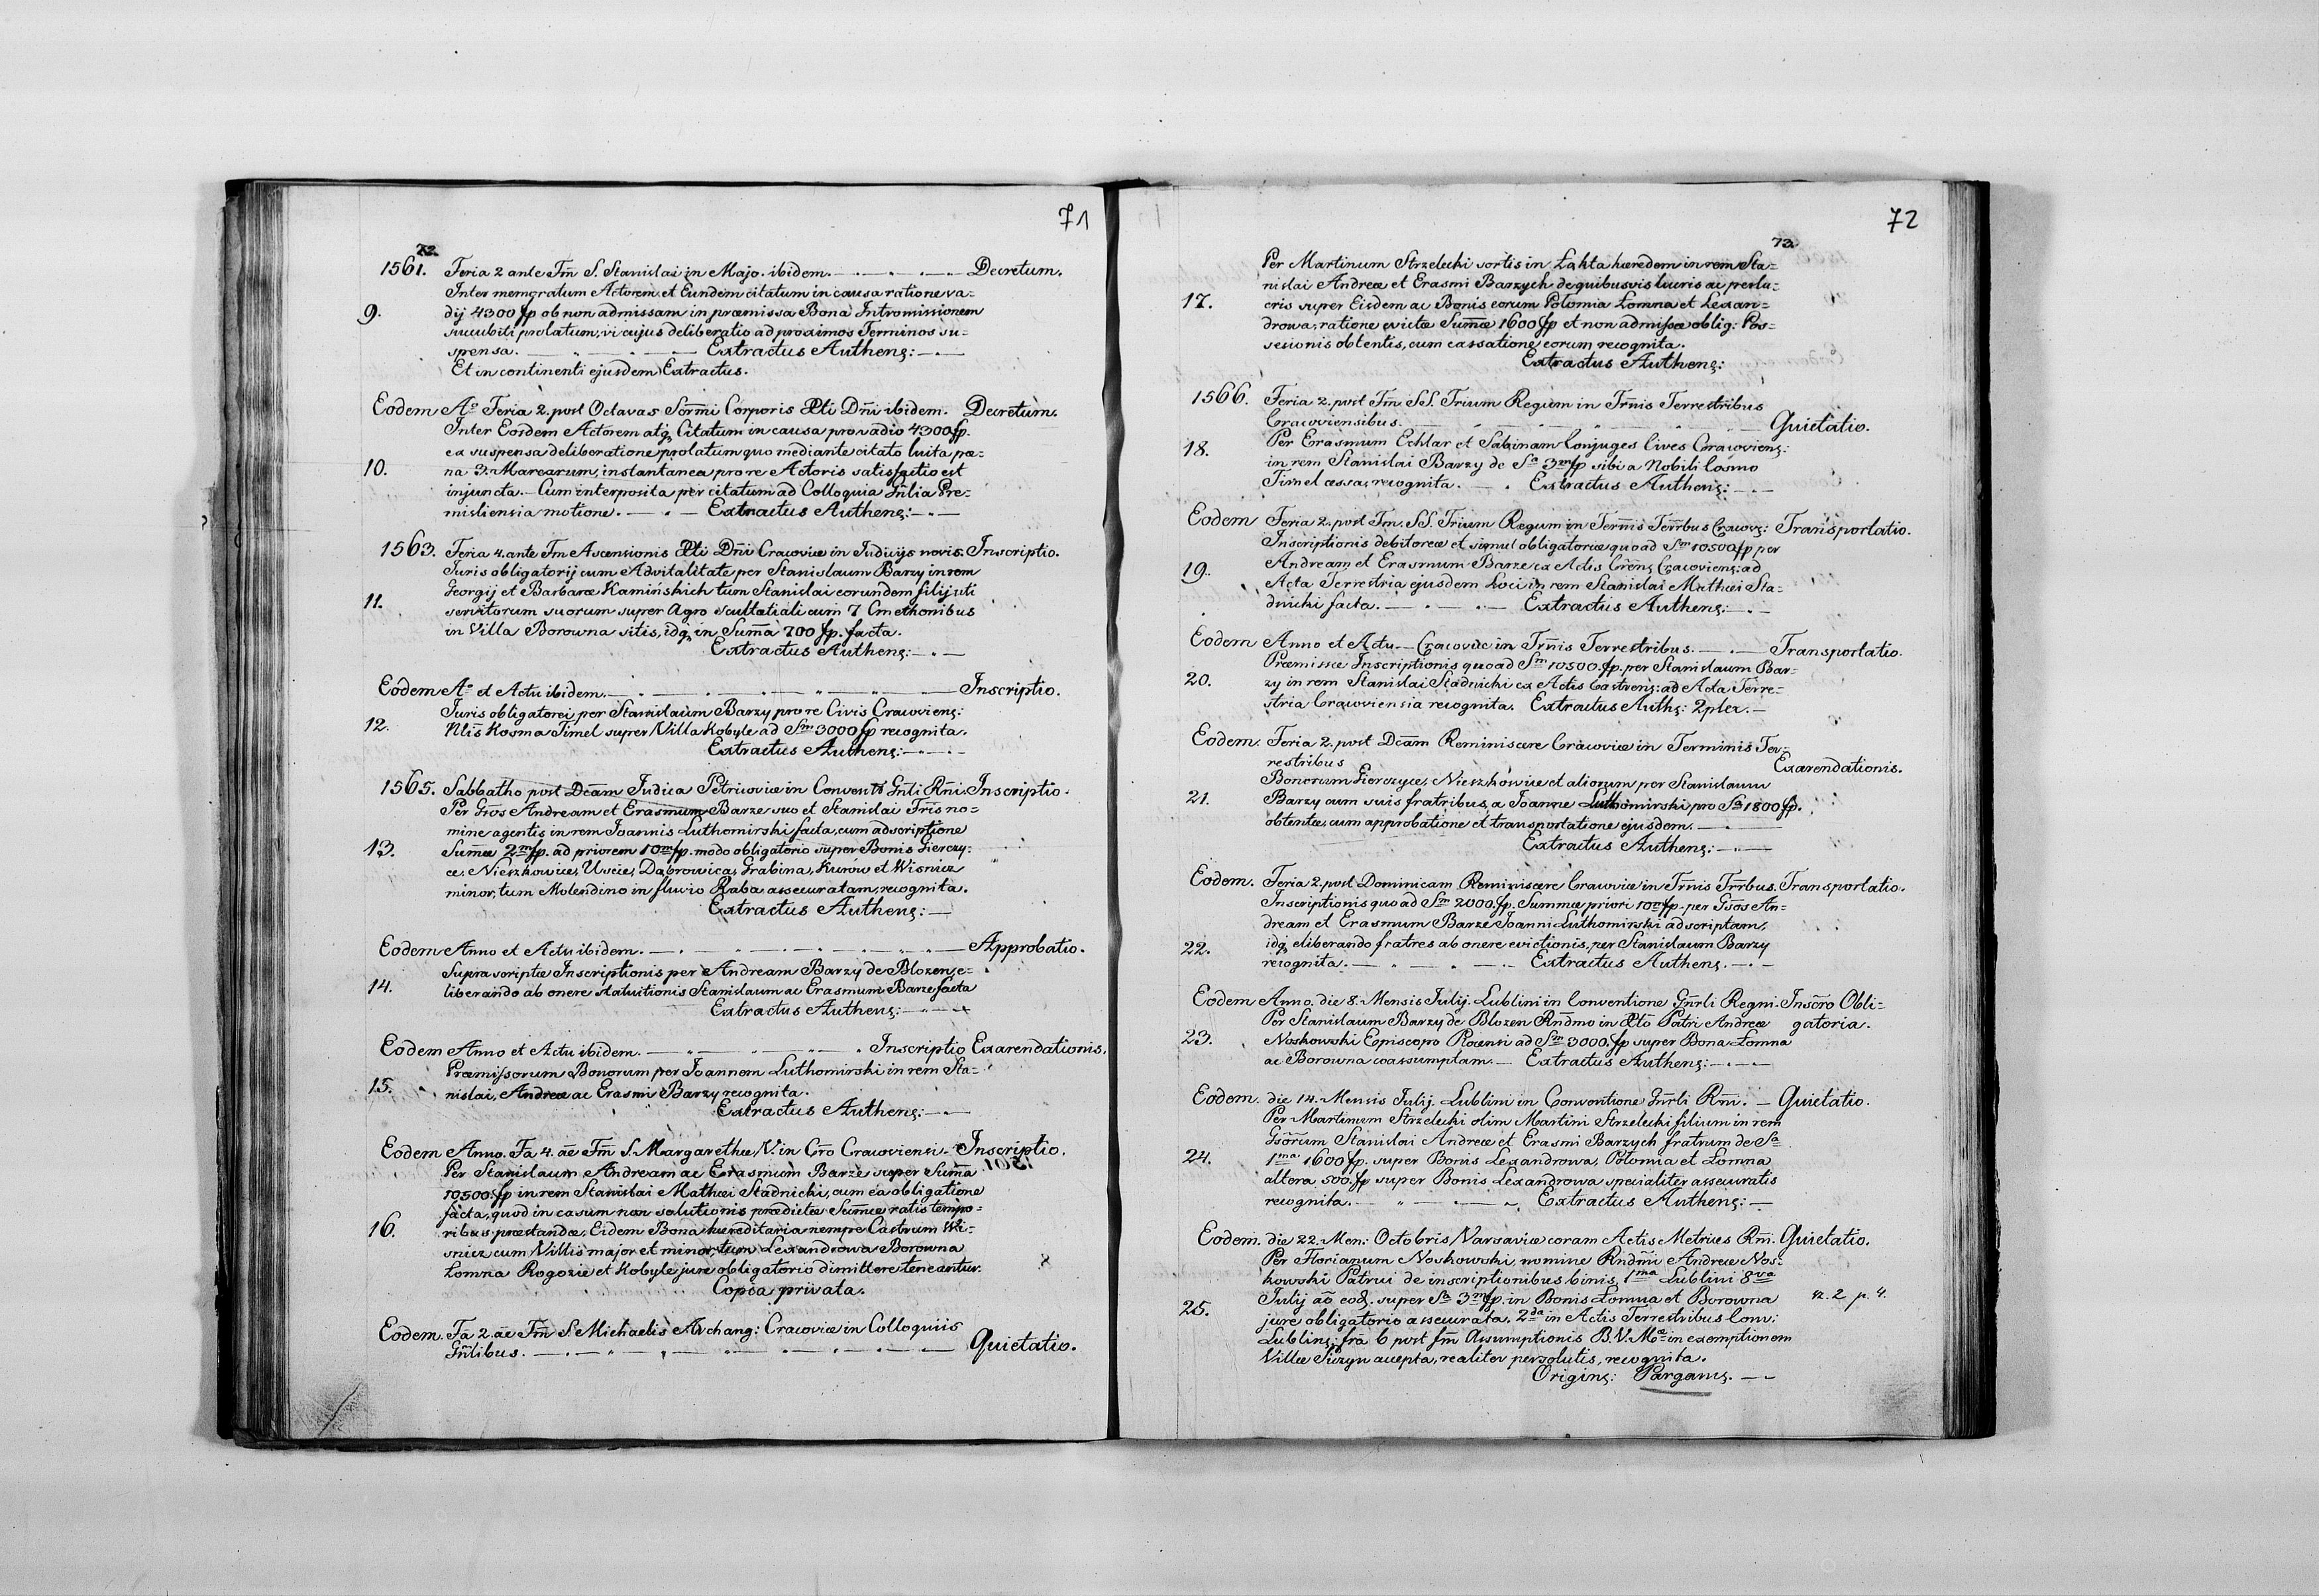 71
72.
1561. Feria 2 ante Fm̃ S. Stanislai in Majo. ibidem. Decretum.
Inter memoratum Actorem et Eundem citatum in causa ratione va=
9. dij 4300 fp ob non admissam in præmissa Bona Intromissionem
succubiti prolatum, vi cujus deliberatio ad proximos Terminos su=
spensa. Extractus Authenς:
Et in continenti ejusdem Extractus.
Eodem Aº Feria 2. post Octavas Sc̃rmi Corporis Xti Dñi ibidem. Decretum.
Inter Eosdem Actorem atq, Citatum in causa pro vadio 4300 fp.
ex suspensa deliberatione prolatum quo mediante citato luita pæ=
10. na 3. Marcarum, instantanea pro re Actoris satisfactio est
injuncta. – Cum interposita per citatum ad Colloquia Gñlia Pre=
misliensia motione. Extractus Authenς:
1563. Feria 4. ante Fm Ascensionis Xti Dñi Cracoviæ in Judicijs novis. Inscriptio.
Juris obligatorij cum Advitalitate per Stanislaum Barzy in rem
Georgij et Barbaræ Kamińskich tum Stanislai eorundem filij uti
11. servitorum suorum super Agro Scultatiali cum 7 Cmethonibus
in Villa Borowna sitis, idq, in Summ̃a 700 fp. facta.
Extractus Authenς:
Eodem Aº et Actu ibidem. Inscriptio.
Juris obligatorii per Stanislaum Barzy pro re Civis Cracovienς:
12. Nlis Kosma Timel super Villa Kobyle ad Sm̃ 3000 fp recognita.
Extractus Authenς:
1565. Sabbatho post Dcãm Judica Petricoviæ in Conventu Gñli Rñi. Inscriptio.
Per Gsos Andream et Erasmum Barze suo et Stanislai Fris no=
mine agentis in rem Joannis Luthomirski facta, cum adscriptione
13. Summæ 2m fp. ad priorem 10m fp. modo obligatorio super Bonis Gierczy=
ce, Nieszkowice, Uście, Dąbrowica, Grabina, Kurów et Wisnicz
minor, tum Molendino in fluvio Raba assecuratam, recognita.
Extractus Authenς:
Eodem Anno et Actu ibidem. Approbatio.
Supra scriptæ Inscriptionis per Andream Barzy de Blozen, e=
14. liberando ab onere statuitionis Stanislaum ac Erasmum Barze facta
Extractus Authenς:
Eodem Anno et Actu ibidem. Inscriptio Exarendationis.
Præmissorum Bonorum per Joannem Luthomirski in rem Sta=
15. nislai, Andreæ ac Erasmi Barzy recognita.
Extractus Authenς:
Eodem Anno. Fa 4. ae Fm̃ S. Margarethæ V. in Cro Cracoviensi. Inscriptio.
Per Stanislaum Andream ac Erasmum Barze super Summ̃a
10500. fp in rem Stanislai Mathæi Stadnicki, cum ea obligatione
facta, quod in casum non solutionis prædictæ Summæ ratis tempo=
16. ribus præstandæ, Eidem Bona hæreditaria nempe Castrum Wi=
snicz cum Villis major et minor, tum Lexandrowa Borowna
Łomna Rogozie et Kobyle jure obligatorio dimittere teneantur.
Copia privata.
Eodem. Fa 2. ae Fm̃ S. Michaelis Archang: Cracoviæ in Colloquiis
Gñlibus. Quietatio.
72
73.
Per Martinum Strzelecki sortis in Łąkta hæredem in rem Sta=
nislai Andreæ et Erasmi Barzych de quibusvis lucris ac perlu=
17. cris super Eisdem ac Bonis eorum Połomia Łomna et Lexan=
drowa, ratione evictæ Summæ 1600 fp et non admissæ oblig: Pos=
sesionis obtentis, cum cassatione eorum, recognita.
Extractus Authenς:
1566. Feria 2. post Fm̃ SS. Trium Regum in Trm̃nis Terrestribus
Cracoviensibus. Quietatio.
Per Erasmum Echlar et Sabinam Conjuges Cives Cracovienς:
18. in rem Stanislai Barzy de Sa 3m fp sibi a Nobili Cosmo
Timel cessa, recognita. Extractus Authenς:
Eodem Feria 2. post Fm. SS. Trium Regum in Term̃nis Terr̃bus Cracovς: Transportatio.
Inscriptionis debitoreæ et simul obligatoriæ quoad Sm 10500 fp per
19. Andream et Erasmum Barze ex Actis Crẽnς Cracovienς: ad
Acta Terrestria ejusdem Loci in rem Stanislai Mathæi Sta=
dnicki facta. Extractus Authenς:
Eodem Anno et Actu. Cracoviæ in Trm̃nis Terrestribus. Transportatio.
Præmissæ Inscriptionis quoad Sm 10500. fp. per Stanislaum Bar=
20. zy in rem Stanislai Stadnicki ex Actis Castrenς: ad Acta Terre=
stria Cracoviensia recognita. Extractus Authς: 2plex.
Eodem. Feria 2. post Dcãm Reminiscere Cracoviæ in Terminis Ter=
restribus Exarendationis.
Bonorum Gierczyce, Nieszkowice et aliorum per Stanislaum
21. Barzy cum suis fratribus, a Joanne Luthomirski pro Sa 1800 fp.
obtentæ, cum approbatione et transportatione ejusdem.
Extractus Authenς:
Eodem. Feria 2. post Dominicam Reminiscere Cracoviæ in Trm̃nis Trr̃bus. Transportatio.
Inscriptionis quoad Sm 2000. fp. Summæ priori 10m fp. per Gsos An=
dream et Erasmum Barze Joanni Luthomirski adscriptam,
22. idq, eliberando fratres ab onere evictionis, per Stanislaum Barzy
recognita. Extractus Authenς.
Eodem Anno. die 8. Mensis Julij. Lublini in Conventione Gñrli Regni. Inscr̃o Obli=
Per Stanislaum Barzy de Blozen Rñdmo in Xtõ Patri Andreæ gatoria.
23. Noskowski Episcopo Plocensi ad Sm 3000. fp super Bona Łomna
ac Borowna coassumptam. Extractus Authenς:
Eodem. die 14. Mensis Julij. Lublini in Conventione Gñrli Rñi. Quietatio.
Per Martinum Strzelecki olim Martini Strzelecki filium in rem
Gsõrum Stanislai Andreæ et Erasmi Barzych fratrum de Sa
24. 1ma 1600 fp. super Bonis Lexandrowa, Połomia et Łomna
altera 500. fp super Bonis Lexandrowa specialiter assecuratis
recognita. Extractus Authenς:
Eodem. die 22. Men: Octobris Varsaviæ coram Actis Metrices Rñi. Quietatio.
Per Florianum Noskowski, nomine Rñdmi Andreæ Nos=
kowski Patrui de inscriptionibus binis, 1ma Lublini 8va
25. Julij aõ eod. super Sa 3m fp. in Bonis Łomna et Borowna n. 2 p. 4.
jure obligatorio assecurata, 2da in Actis Terrestribus Conv:
Lublinς: fra 6 post fm̃ Assumptionis B. V. Mæ in exemptionem
Villæ Siczyn accepta, realiter persolutis, recognita.
Origins: Pargamς.